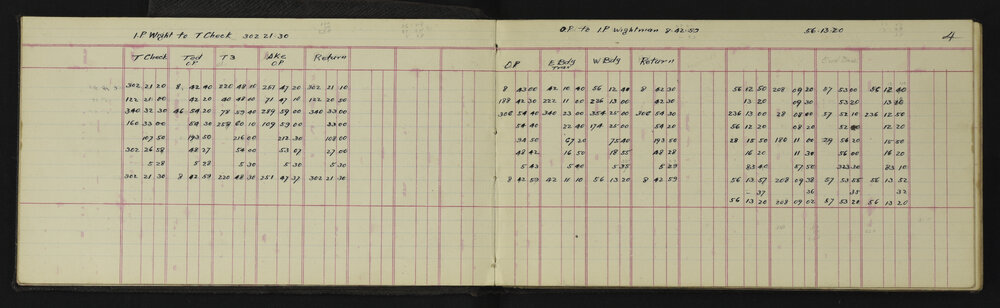 I.P Wight to T Check 302 21.30
T Check Tod O.P. T 3 AKE O.P. Return
302 21 20 8. 42 40 220 48 10 251 47 20 302 21 10
122 21 00 42 20 40 48 00 71 47 10 122 20 50
340 32 30 46 54 20 78 59 40 289 59 00 340 33 00
160 33 00 54 30 259 60 10 109 59 00 33 00
107 50 193 50 216 00 212 30 108 00
302 26 58 48 27 54 00 53 07 27 00
5 28 5 28 5 30 5 30 5 30
302 21 30 8 42 59 220 48 30 251 47 37 302 21 30
O.P. to I.P Wightman 8.42.59 56.13.20 4
O.P E Bdg Tran W Bdg Return
8 43 00 42 10 40 56 12 40 8 42 30 56 12 50 208 09 30 57 53 00 56 12 40
188 42 30 222 11 00 236 13 00 42 30 13 20 09 20 53 20 13
308 54 40 340 23 00 354 25 00 308 54 30 236 13 00 28 08 57 52 10 236 12 50
54 40 22 40 174 25 00 54 20 56 12 20 08 20 52 12 20
194 50 67 20 75 40 193 50 28 15 50 180 11 00 29 54 20 15 50
48 42 16 50 18 55 48 28 16 20 11 30 56 00 16 20
5 43 5 40 5 35 5 29 83 40 57 50 323 30 83 10
8 42 59 42 11 10 56 13 20 8 42 59 56 13 57 208 09 38 57 53 55 56 13 52
- 37 36 35 32
56 13 20 208 09 02 57 53 20 56 13 20